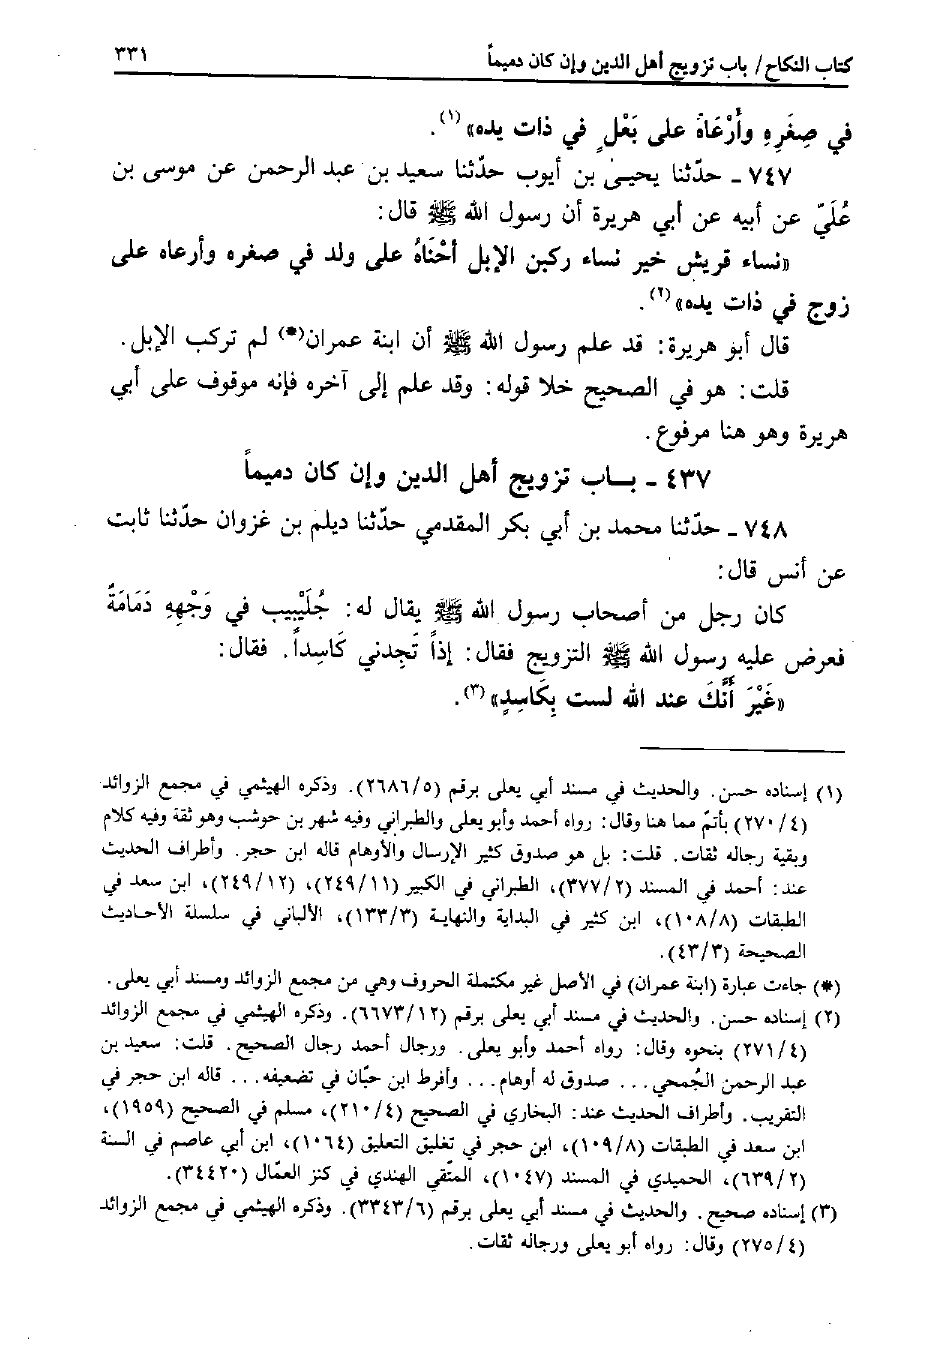 كتاب النكاح / باب تزويج أهل الدين وإن كان دميماً ٣٣١
في صِغَرِهِ وأَرْعَاهُ على بَعْلٍ في ذات يده»(١).
٧٤٧ ـ حدّثنا يحيىٰ بن أيوب حدّثنا سعيد بن عبد الرحمن عن موسى بن
عُلَيّ عن أبيه عن أبي هريرة أن رسول الله ﷺ قال:
«نساء قريش خير نساء ركبن الإبل أَحْنَاهُ على ولد في صغره وأرعاه على
زوج في ذات يده»(٢).
قال أبو هريرة: قد علم رسول الله ﷺ أن ابنة عمران(*) لم تركب الإبل.
قلت: هو في الصحيح خلا قوله: وقد علم إلى آخره فإنه موقوف على أبي
هريرة وهو هنا مرفوع.
٤٣٧ ـ بـاب تزويج أهل الدين وإن كان دميماً
٧٤٨ ـ حدّثنا محمد بن أبي بكر المقدمي حدّثنا ديلم بن غزوان حدّثنا ثابت
عن أنس قال:
كان رجل من أصحاب رسول الله ﷺ يقال له: جُلَيْبِيب في وَجْهِهِ دَمَامَةٌ
فعرض عليه رسول الله ﷺ التزويج فقال: إذاً تَجِدني كَاسِداً. فقال:
«غَيْرَ أَنَّكَ عند الله لست بِكَاسِدٍ»(٣).
(١) إسناده حسن. والحديث في مسند أبي يعلى برقم (٢٦٨٦/٥). وذكره الهيثمي في مجمع الزوائد
(٢٧٠/٤) بأتمّ مما هنا وقال: رواه أحمد وأبو يعلى والطبراني وفيه شهر بن حوشب وهو ثقة وفيه كلام
وبقية رجاله ثقات. قلت: بل هو صدوق كثير الإرسال والأوهام قاله ابن حجر. وأطراف الحديث
عند: أحمد في المسند (٣٧٧/٢)، الطبراني في الكبير (٢٤٩/١١)، (٢٤٩/١٢)، ابن سعد في
الطبقات (١٠٨/٨)، ابن كثير في البداية والنهاية (١٣٣/٣)، الألباني في سلسلة الأحاديث
الصحيحة (٤٣/٣).
(*) جاءت عبارة (ابنة عمران) في الأصل غير مكتملة الحروف وهي من مجمع الزوائد ومسند أبي يعلى.
(٢) إسناده حسن. والحديث في مسند أبي يعلى برقم (٦٦٧٣/١٢). وذكره الهيثمي في مجمع الزوائد
(٢٧١/٤) بنحوه وقال: رواه أحمد وأبو يعلى. ورجال أحمد رجال الصحيح. قلت: سعيد بن
عبد الرحمن الجُمحي... صدوق له أوهام... وأفرط ابن حبّان في تضعيفه... قاله ابن حجر في
التقريب. وأطراف الحديث عند: البخاري في الصحيح (٢١٠/٤)، مسلم في الصحيح (١٩٥٩)،
ابن سعد في الطبقات (١٠٩/٨)، ابن حجر في تغليق التعليق (١٠٦٤)، ابن أبي عاصم في السنة
(٦٣٩/٢)، الحميدي في المسند (١٠٤٧)، المتّقي الهندي في كنز العمّال (٣٤٤٢٠).
(٣) إسناده صحيح. والحديث في مسند أبي يعلى برقم (٣٣٤٣/٦). وذكره الهيثمي في مجمع الزوائد
(٢٧٥/٤) وقال: رواه أبو يعلى ورجاله ثقات.